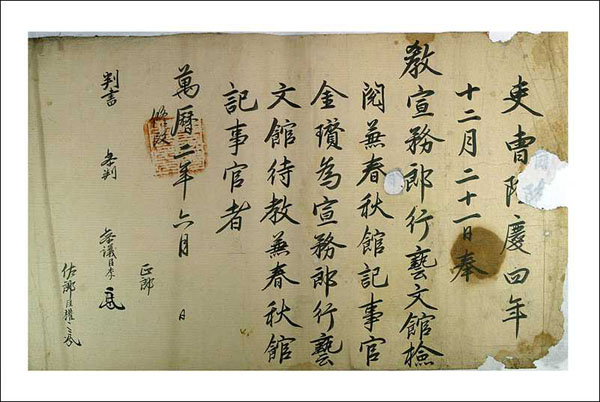 吏曹隆慶四年
十二月二十一日奉
教宣務郎行藝文館檢
閱兼春秋館記事官
金瓚為宣務郎行藝
文館待教兼春秋館
記事官者
萬曆二年六月 日
判書 參判 參議臣李 正郎
佐郎臣權